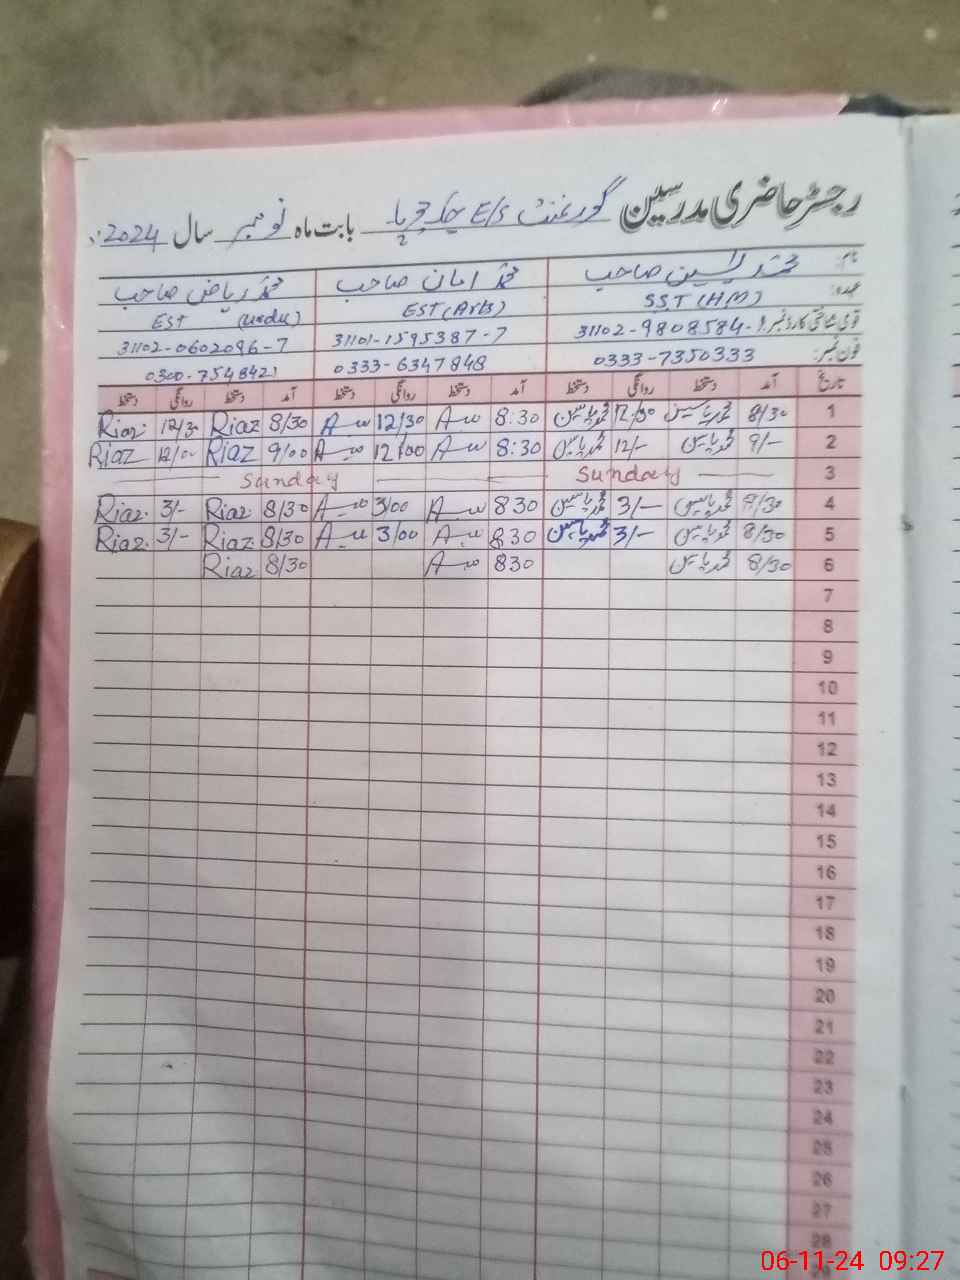 رجسٹر حاضری مدرسین گورنمنٹ E/S چک بابت ماہ نومبر سال 2024ء
نام: محمد یٰسین صاحب محمد امان صاحب محمد ریاض صاحب
عہدہ: SST (HM) EST (Arts) EST (urdu)
قومی شناختی کارڈ نمبر: 31102-9808584-1 31101-1595387-7 31102-0602096-7
فون نمبر: 0333-7350333 0333-6347848 0300-7548421
تاریخ آمد دستخط روانگی دستخط آمد دستخط روانگی دستخط آمد دستخط روانگی دستخط
1 8/30 محمد یاسین 12/30 محمد یاسین 8:30 12/30 8/30 Riaz 12/30 Riaz.
2 9/- محمد یاسین 12/- محمد یاسین 8:30 12/00 9/00 Riaz 12/00 Riaz
3 Sunday Sunday
4 8/30 محمد یاسین 3/- محمد یاسین 830 3/00 8/30 Riaz 3/- Riaz.
5 8/30 محمد یاسین 3/- محمد یاسین 830 3/00 8/30 Riaz 3/- Riaz.
6 8/30 محمد یاسین 830 8/30 Riaz
7
8
9
10
11
12
13
14
15
16
17
18
19
20
21
22
23
24
25
26
27
28
06-11-24 09:27